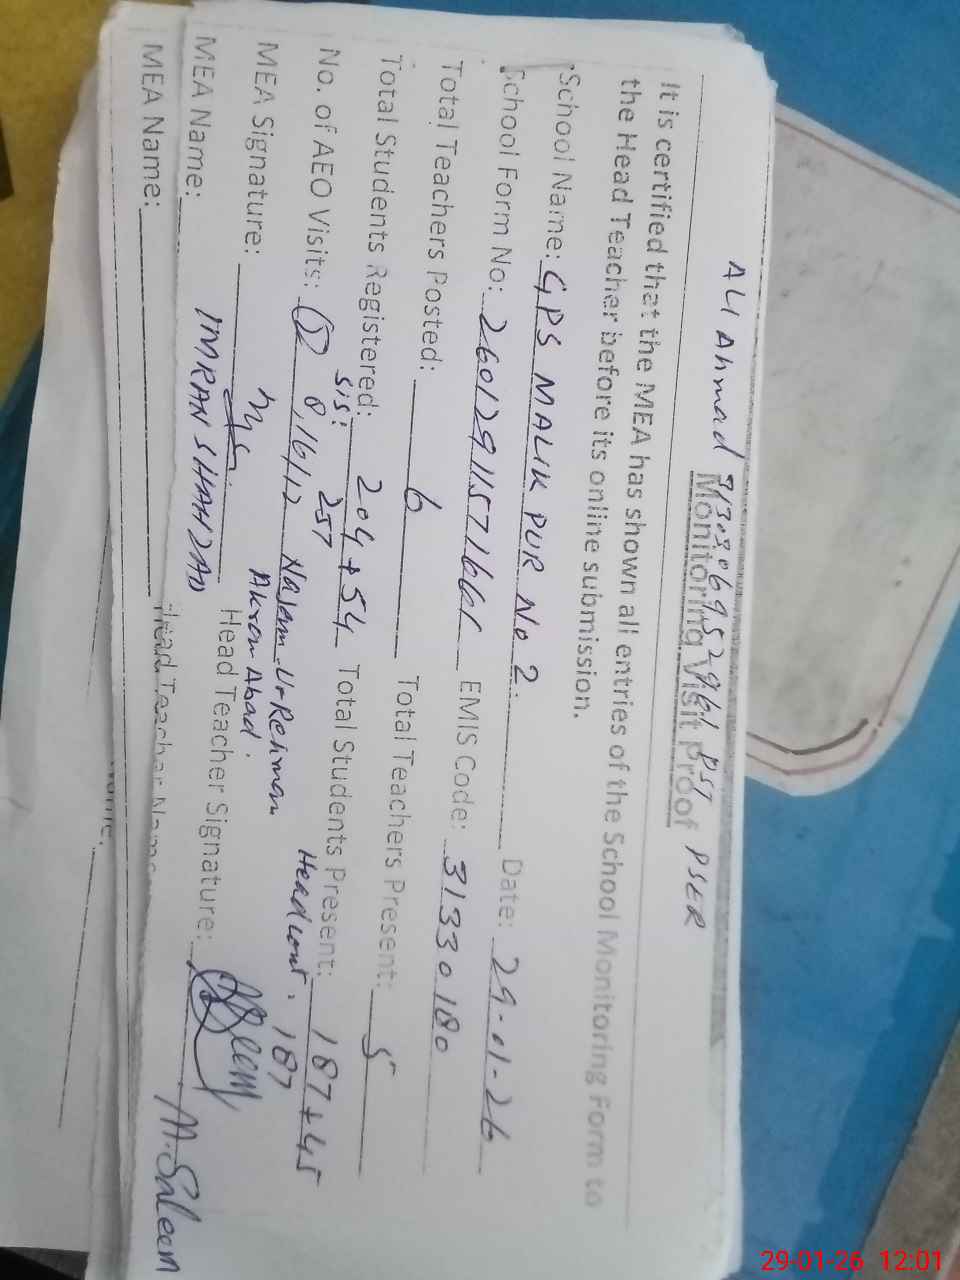 ALI Ahmad PST PSER
Monitoring Visit Proof
It is certified that the MEA has shown all entries of the School Monitoring Form to
the Head Teacher before its online submission.
School Name: GPS MALIK PUR No 2. Date: 29-01-26
School Form No: EMIS Code: 31330180
Total Teachers Posted: 6 Total Teachers Present: 5
Total Students Registered: 204+54 Total Students Present: 187+45
SIS: 257 Headcount. 187
No. of AEO Visits: 8,16,12 Najam-Ur-Rehman
Akram Abad.
MEA Signature: Head Teacher Signature:
MEA Name: IMRAN SHAHZAD Head Teacher Name: M. Saleem
MEA Name:
Name:
29-01-26 12:01